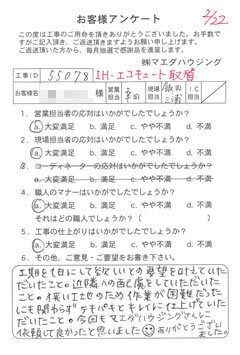 2/22
お客様アンケート
この度は工事のご用命を頂きありがとうございました。お手数で
すがご記入頂き、ご返送頂きますようお願い申し上げます。
ご返送頂いた方から、毎月抽選で感謝品を進呈します。
㈱マエダハウジング
工事ID 55078 IH・エコキュート取替
お客様名 様 営業担当 現場担当
1. 営業担当者の応対はいかがでしたでしょうか?
a. 大変満足 b. 満足 c. やや不満 d. 不満
2. 現場担当者の応対はいかがでしたでしょうか?
a. 大変満足 b. 満足 c. やや不満 d. 不満
3. コーディネーターの応対はいかがでしたでしょうか?
a. 大変満足 b. 満足 c. やや不満 d. 不満
4. 職人のマナーはいかがでしたでしょうか?
a. 大変満足 b. 満足 c. やや不満 d. 不満
それはどの職人でしょうか?( )
5. 工事の仕上がりはいかがでしたでしょうか?
a. 大変満足 b. 満足 c. やや不満 d. 不満
6. その他、ご意見・ご要望をお書き下さい。
工期を1日にして欲しいとの要望を叶えていた
だいたこと。近隣への配慮をしていただいた
こと。狭い土地のため作業が困難だった
にも関わらずテキパキとキレイに仕上げていた
だいたこと。今回もマエダハウジングさんに
依頼して良かったと思いました☺ ありがとうござい
ました。